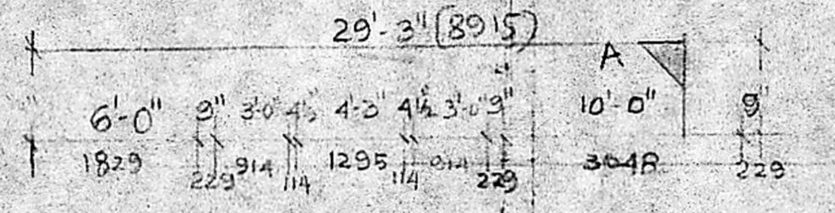 29'-3" (8915)
A
6'-0" 9" 3'-0" 4½" 4'-3" 4½ 3'-0" 9" 10'-0" 9"
1829 229 914 114 1295 114 914 229 3048 229